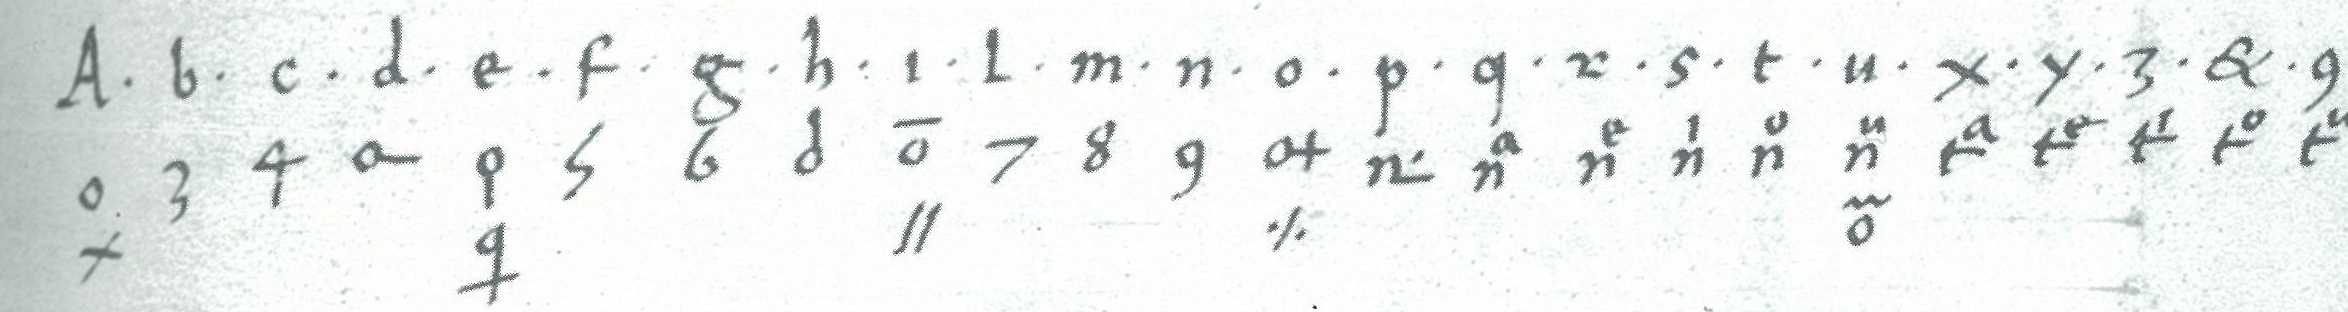 A . b . c . d . e . f . g . h . ı . l . m . n . o . p . q . r . s . t . u . x . y . z . & . 9
o 3 4 q 5 6 d ō 7 8 9 n nᵃ nᵉ nⁱ nᵒ nᵘ tᵃ tᵉ tⁱ tᵒ tᵘ
+ q // ·/· õ